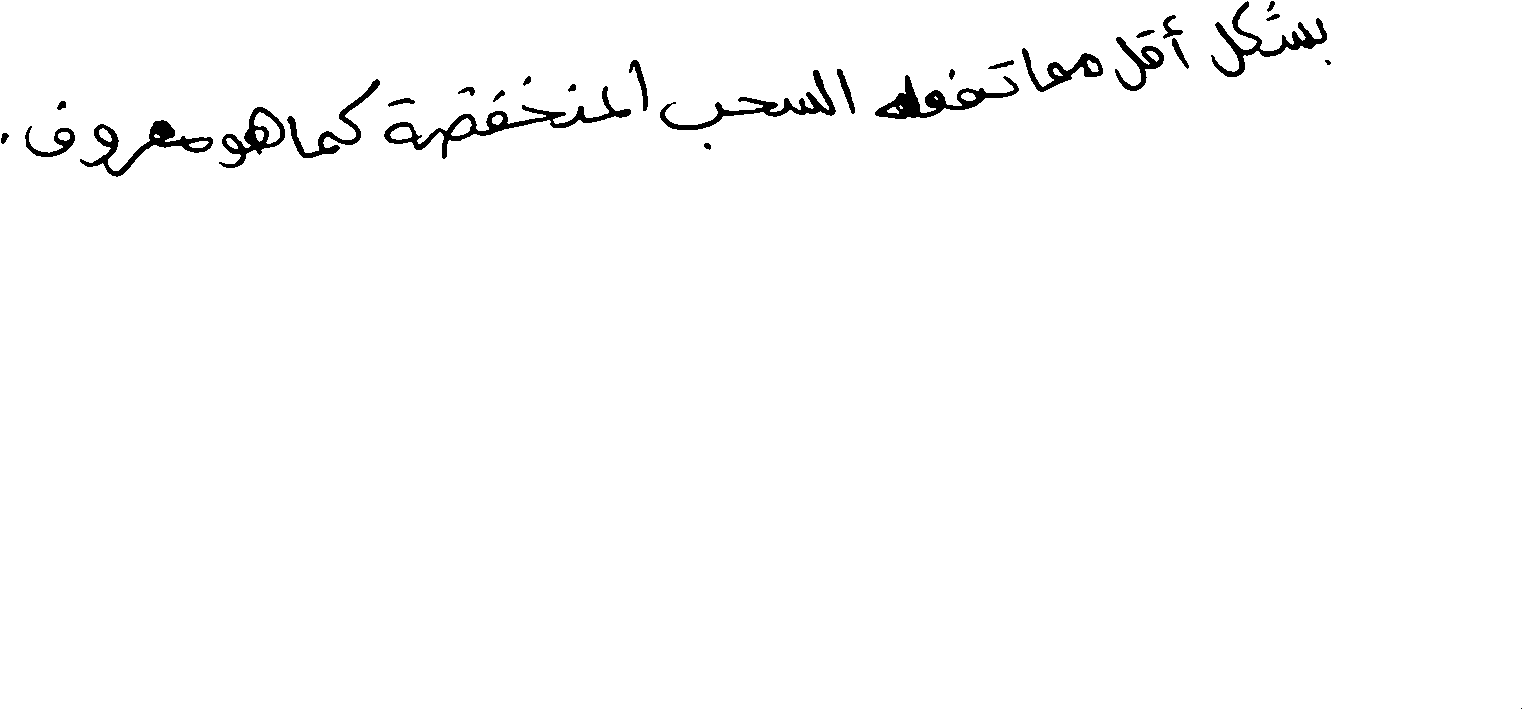 بشكل أقل مما تفعله السحب المنخفضة كما هو معروف.